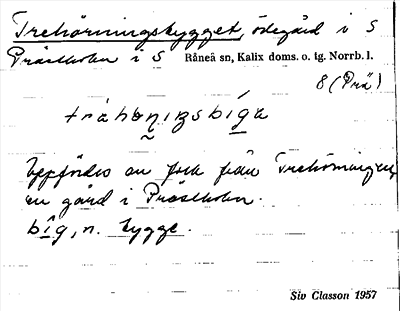 Trehörningsbygget, ödegård i S
Prästholm i S Råneå sn, Kalix doms. o. tg. Norrb. l.
8 (Prä)
tráhǫṇıŋsbíga
Uppfördes av folk från Trehörningen,
en gård i Prästholm.
bîg, n. bygge.
Siv Classon 1957